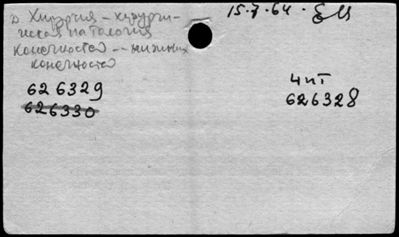 15.7.64. ЕМ
Хирургия - хирурги-
ческая патология
конечностей -- нижних
конечностей
626329
626330
4 пт
626328